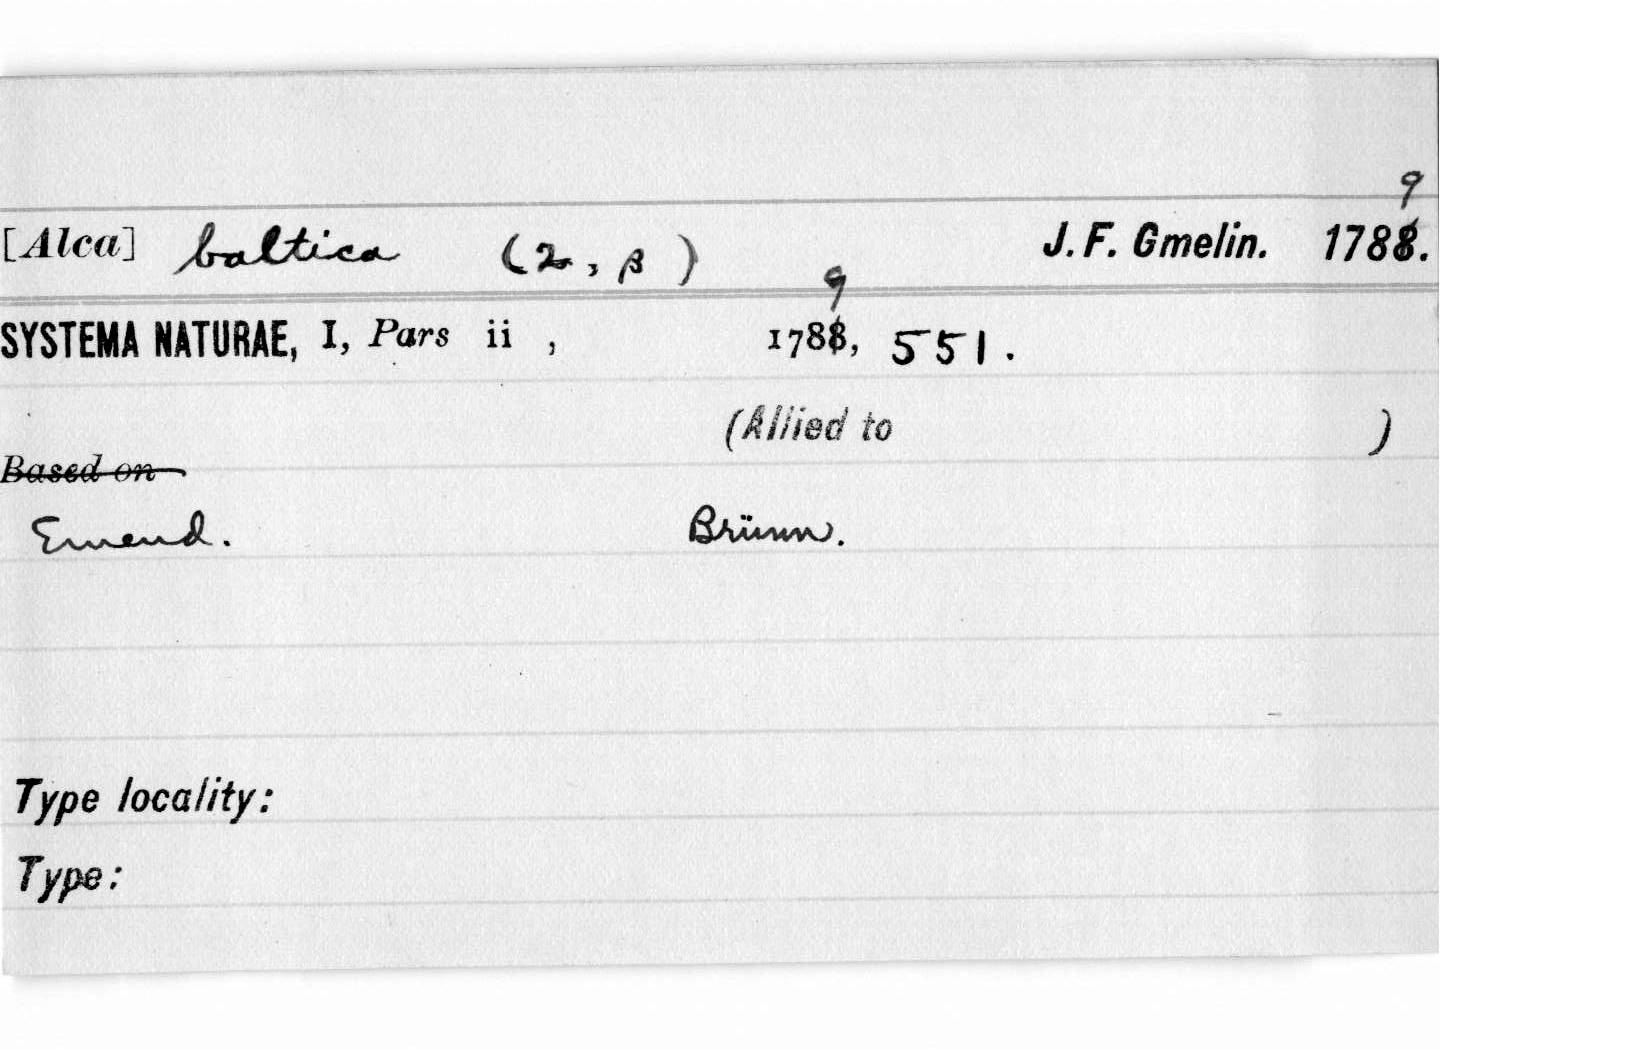 [Alca] baltica (2, β) J. F. Gmelin. 1789.
SYSTEMA NATURAE, I, Pars ii , 1789, 551.
(Allied to )
Based on
Emend. Brünn.
Type locality:
Type: